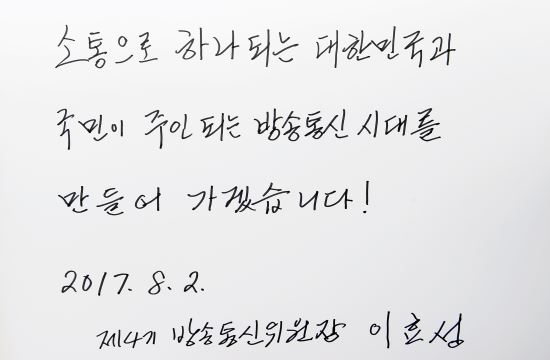 소통으로 하나되는 대한민국과
국민이 주인 되는 방송통신 시대를
만들어 가겠습니다!
2017. 8. 2.
제4기 방송통신위원장 이효성